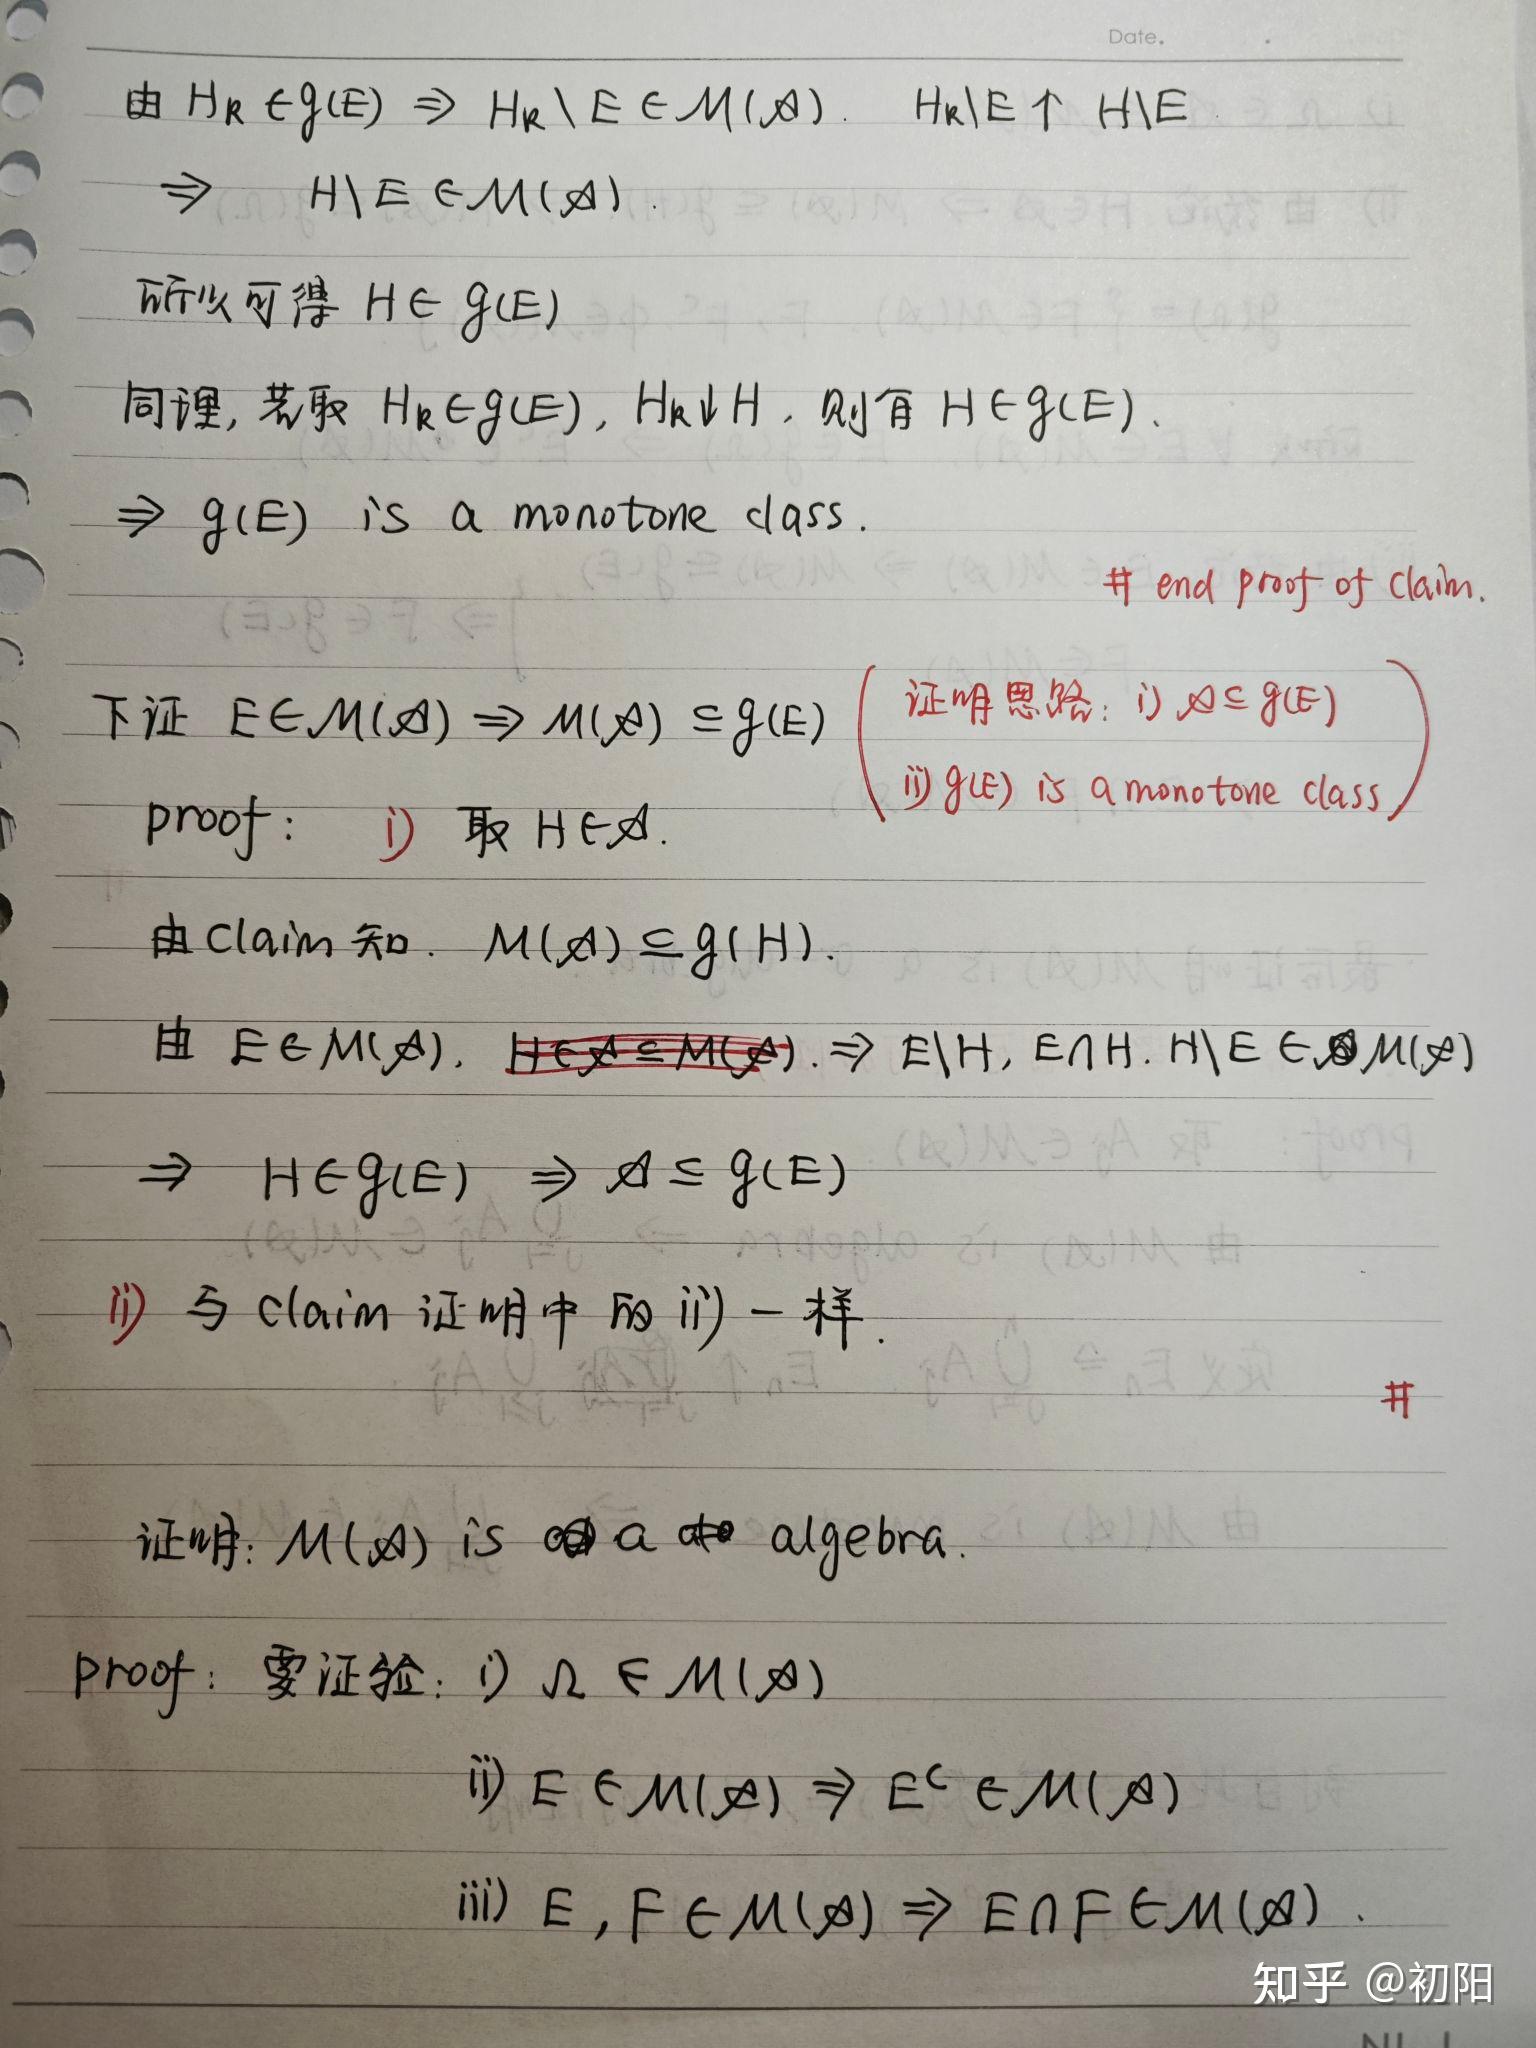 Date.
由 H_k ∈ g(E) ⇒ H_k \ E ∈ M(A). H_k\E ↑ H\E
⇒ H\E ∈ M(A).
所以可得 H ∈ g(E)
同理, 若取 H_k ∈ g(E), H_k ↓ H, 则有 H ∈ g(E).
⇒ g(E) is a monotone class.
# end proof of claim.
下证 E ∈ M(A) ⇒ M(A) ⊆ g(E)
证明思路: i) A ⊆ g(E)
ii) g(E) is a monotone class
proof: i) 取 H ∈ A.
由 claim 知. M(A) ⊆ g(H).
由 E ∈ M(A), H ∈ A ⊆ M(A). ⇒ E\H, E∩H. H\E ∈ M(A)
⇒ H ∈ g(E) ⇒ A ⊆ g(E)
ii) 与 claim 证明中的 ii) 一样.
#
证明: M(A) is a algebra.
proof: 要证验: i) Ω ∈ M(A)
ii) E ∈ M(A) ⇒ E^c ∈ M(A)
iii) E, F ∈ M(A) ⇒ E∩F ∈ M(A).
知乎 @初阳